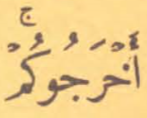 أَخْرَجُوكُمْ ۚ